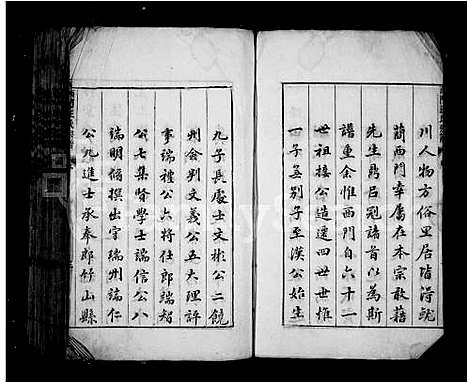 川人物方俗里居皆得
蘭西門辜屬在本宗敢藉
先生鼎呂冠諸首以為斯
譜重余惟西門自六十一
世祖接公造遷四世世惟
一子無別子至漢公始生
九子長處士文彬公二饒
州僉判文義公五大理評
事端禮公六將仕郎端智
公七集賢學士端信公八
端明脩撰出守瑞州端仁
公九進士承奉郎竹山縣